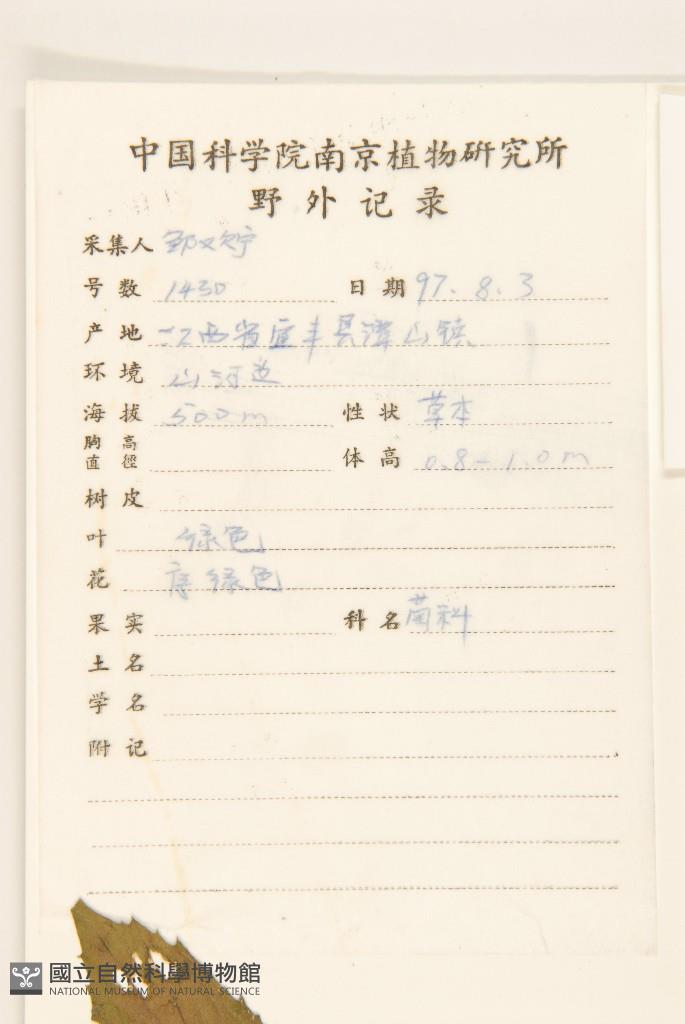 中国科学院南京植物研究所
野外记录
采集人
号数 1430 日期 97.8.3
产地 江西省宜丰县潭山镇
环境 山河边
海拔 500m 性状 草本
胸高直徑 体高 0.8-1.0m
树皮
叶 绿色
花 绿色
果实 科名 菊科
土名
学名
附记
國立自然科學博物館
NATIONAL MUSEUM OF NATURAL SCIENCE